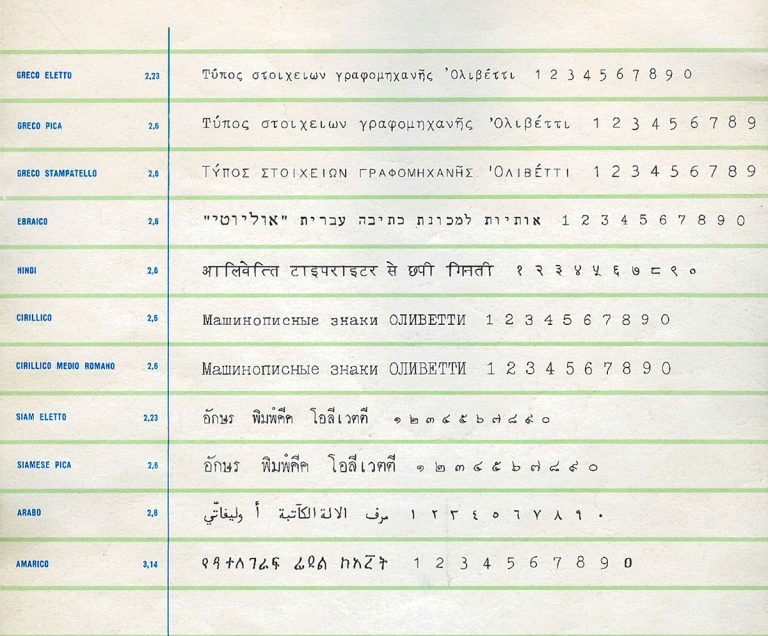 GRECO ELETTO 2,23 Τύπος στοιχειων γραφομηχανῆς Ὀλιβέττι 1 2 3 4 5 6 7 8 9 0
GRECO PICA 2,6 Τύπος στοιχειων γραφομηχανῆς Ὀλιβέττι 1 2 3 4 5 6 7 8 9
GRECO STAMPATELLO 2,6 ΤΎΠΟΣ ΣΤΟΙΧΕΙΩΝ ΓΡΑΦΟΜΗΧΑΝΗ͂Σ ὈΛΙΒΈΤΤΙ 1 2 3 4 5 6 7 8 9
EBRAICO 2,6 אותיות למכונת כתיבה עברית "אוליוטי" 1 2 3 4 5 6 7 8 9 0
HINDI 2,6 आलिवेत्ति टाइपराइटर से छपी गिनती १ २ ३ ४ ५ ६ ७ ८ ९ ०
CIRILLICO 2,6 Машинописные знаки ОЛИВЕТТИ 1 2 3 4 5 6 7 8 9 0
CIRILLICO MEDIO ROMANO 2,6 Машинописные знаки ОЛИВЕТТИ 1 2 3 4 5 6 7 8 9 0
SIAM ELETTO 2,23 อักษร พิมพ์ดีด โอลีเวตตี ๑ ๒ ๓ ๔ ๕ ๖ ๗ ๘ ๙ ๐
SIAMESE PICA 2,6 อักษร พิมพ์ดีด โอลีเวตตี ๑ ๒ ๓ ๔ ๕ ๖ ๗ ๘ ๙ ๐
ARABO 2,6 الالة الكآتبة أ وليفاتّي ١ ٢ ٣ ٤ ٥ ٦ ٧ ٨ ٩ ٠
AMARICO 3,14 ፊደል 1 2 3 4 5 6 7 8 9 0